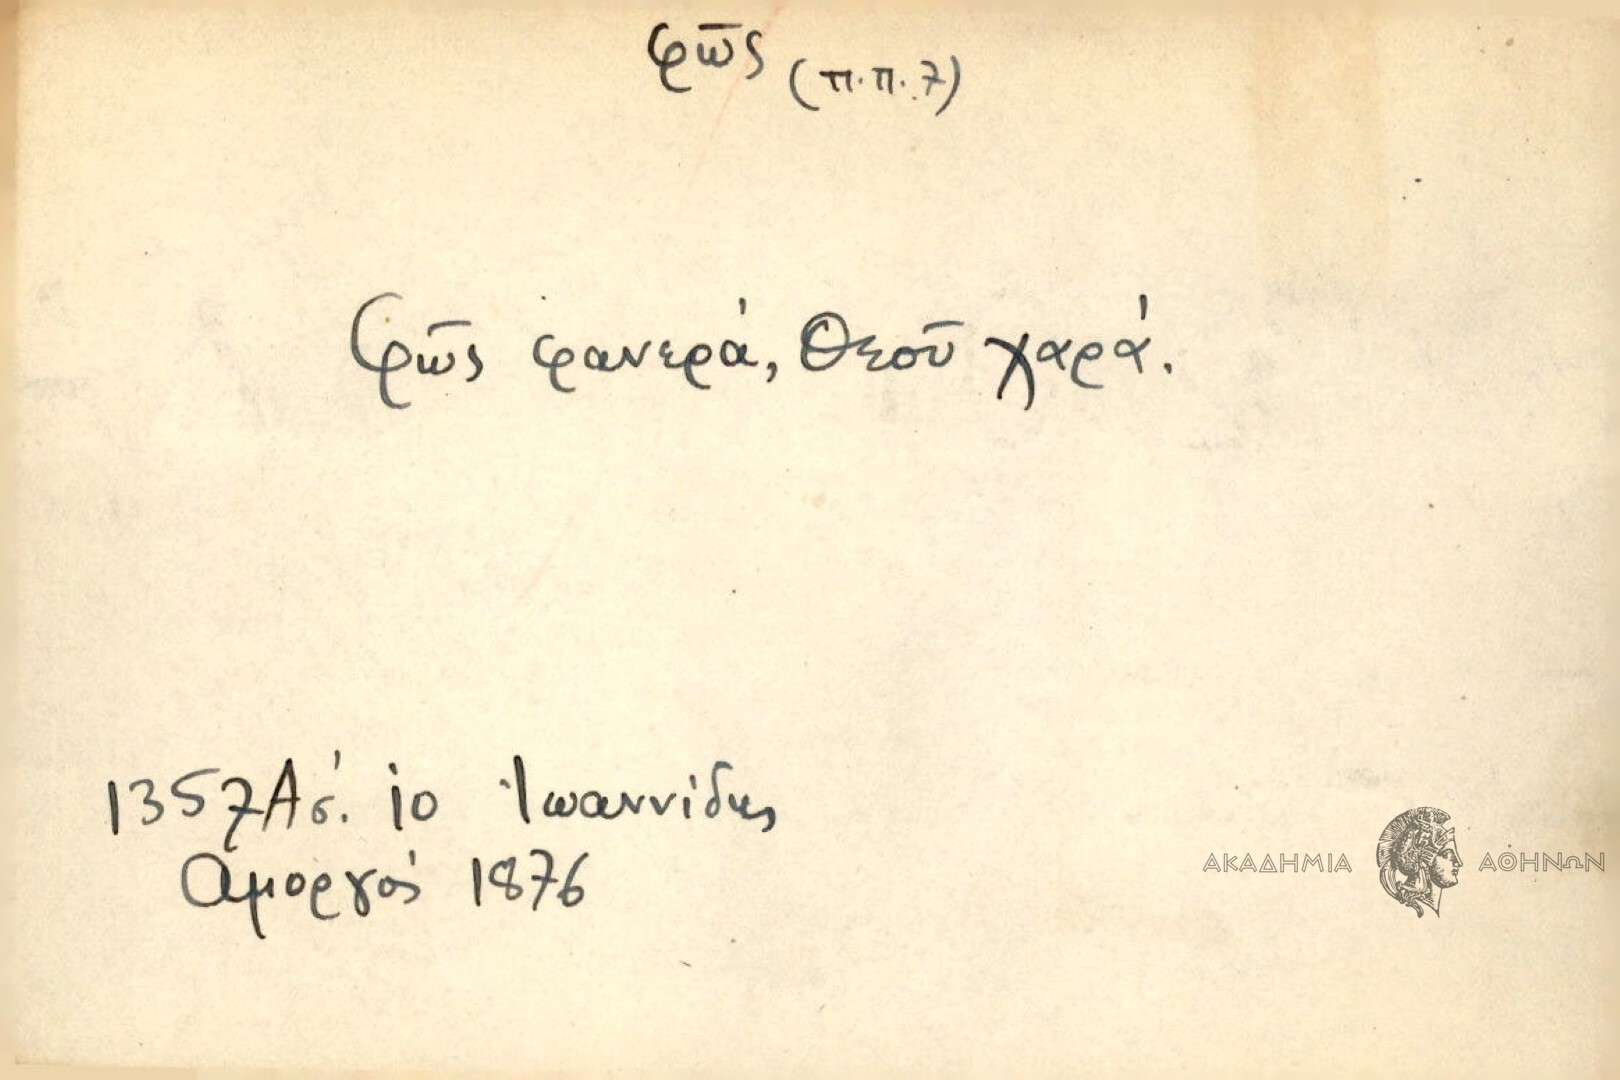 φῶς (π.π.7)
Φῶς φανερά, Θεοῦ χαρά.
1357 Ασ. 10 Ἰωαννίδης
Αμοργός 1876
ΑΚΑΔΗΜΙΑ ΑΘΗΝΩΝ